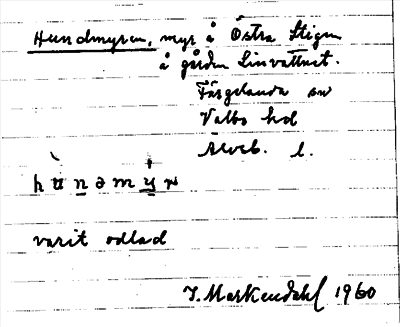 Hundmyren, myr å Östra Stigen
å gården Linvattnet.
Färgelanda sn
Valbo hd
Älvsb. l.
hunəmyr
varit odlad
J. Markendahl 1960